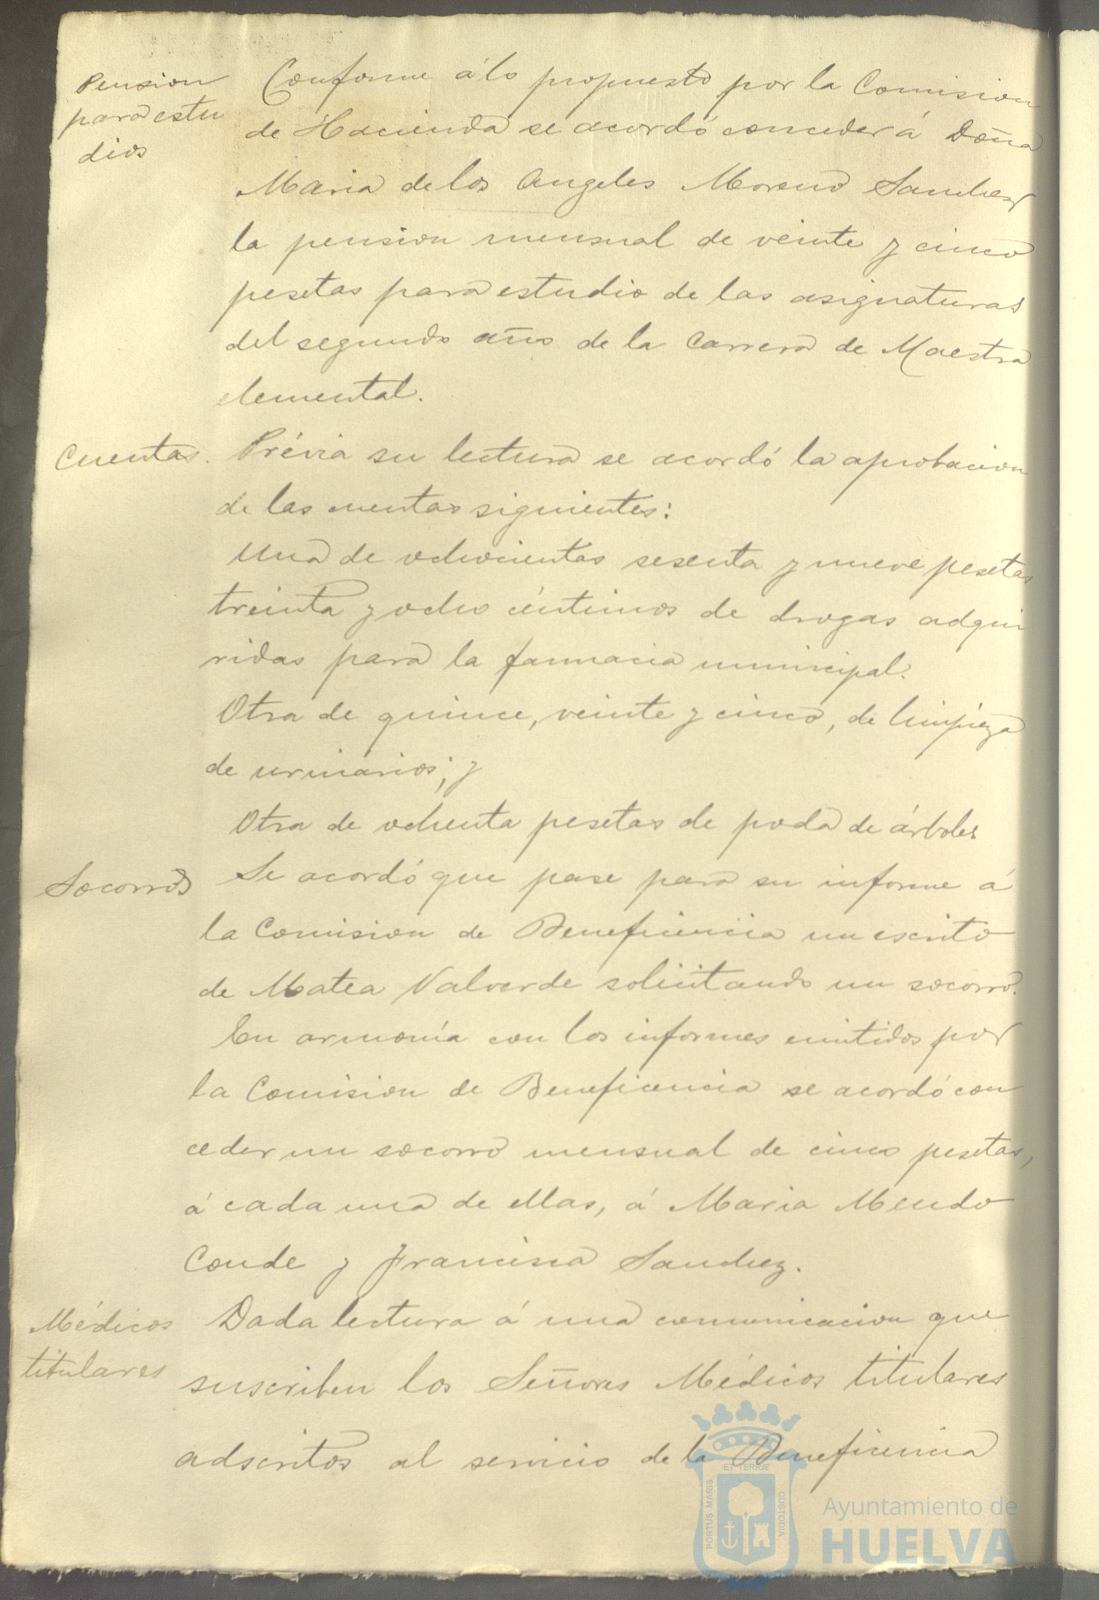 Pension
para estu
dios
Conforme á lo propuesto por la Comision
de Hacienda se acordó conceder á Doña
Maria de los Angeles Moreno Sanchez
la pension mensual de veinte y cinco
pesetas para estudio de las asignaturas
del segundo año de la Carrera de Maestra
elemental.
Cuentas.
Prévia su lectura se acordó la aprobacion
de las cuentas siguientes:
Una de ochocientas sesenta y nueve pesetas
treinta y ocho céntimos de drogas adqui
ridas para la farmacia municipal.
Otra de quince, veinte y cinco, de limpieza
de urinarios; y
Otra de ochenta pesetas de poda de árboles
Socorros
Se acordó que pase para su informe á
la Comision de Beneficencia un escrito
de Matea Valverde solicitando un socorro.
En armonía con los informes emitidos por
la Comision de Beneficencia se acordó con
ceder un socorro mensual de cinco pesetas,
á cada una de ellas, á Maria Mendo
Conde y Francisca Sanchez.
Médicos
titulares
Dada lectura á una comunicacion que
suscriben los Señores Médicos titulares
adscritos al servicio de la Beneficencia
ET TERRÆ
PORTUS MARIS
CUSTODIA
Ayuntamiento de
HUELVA